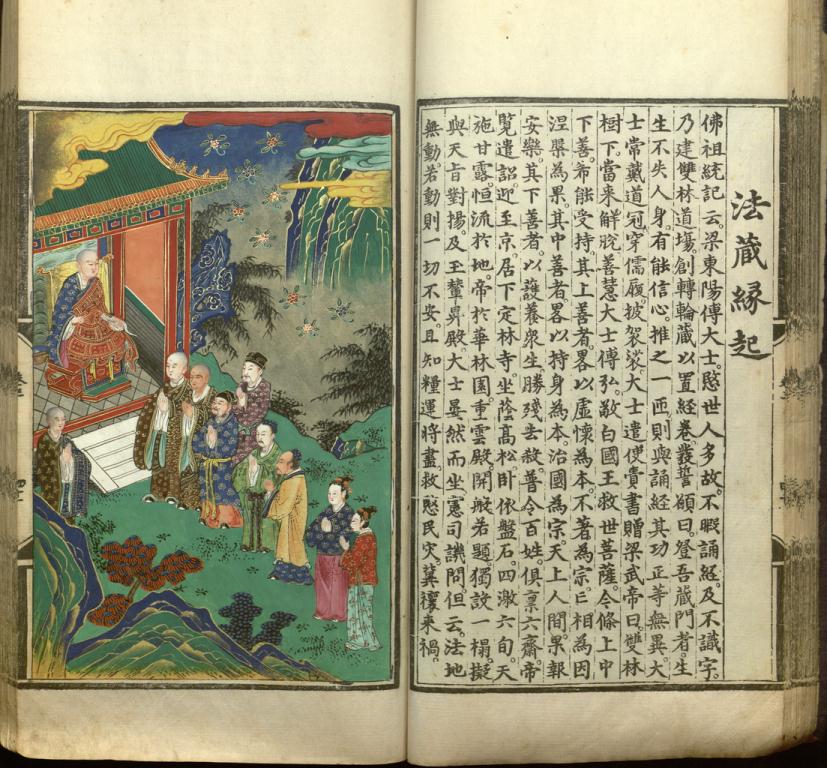 法藏緣起
佛祖統記云。梁東陽傅大士。愍世人多故。不暇誦經。及不識字。
乃建雙林道塲創轉輪藏以置經卷。發誓願曰。登吾藏門者。生
生不失人身。有能信心。推之一匝。則與誦經其功正等無異。大
士常戴道冠。穿儒履。披袈裟。大士遣使賫書贈梁武帝曰。雙林
樹下。當來解脫善慧大士傅弘。敬白國王救世菩薩。今條上中
下善。希能受持。其上善者。畧以虛懷為本。不著為宗。亡相為因
涅槃為果。其中善者。畧以持身為本。治國為宗。天上人間。果報
安樂。其下善者。以護養衆生。勝殘去殺。普令百姓。俱稟六齋。帝
覽遣詔迎至京。居下定林寺。坐蔭高松。卧依盤石。四澈六旬。天
施甘露。恒流於地。帝於華林園。重雲殿。開般若題。獨設一榻。擬
與天旨對揚。及玉輦昇殿。大士晏然而坐。憲司譏問。但云。法地
無動。若動則一切不安。且知糧運將盡。救愍民灾。冀禳來禍。